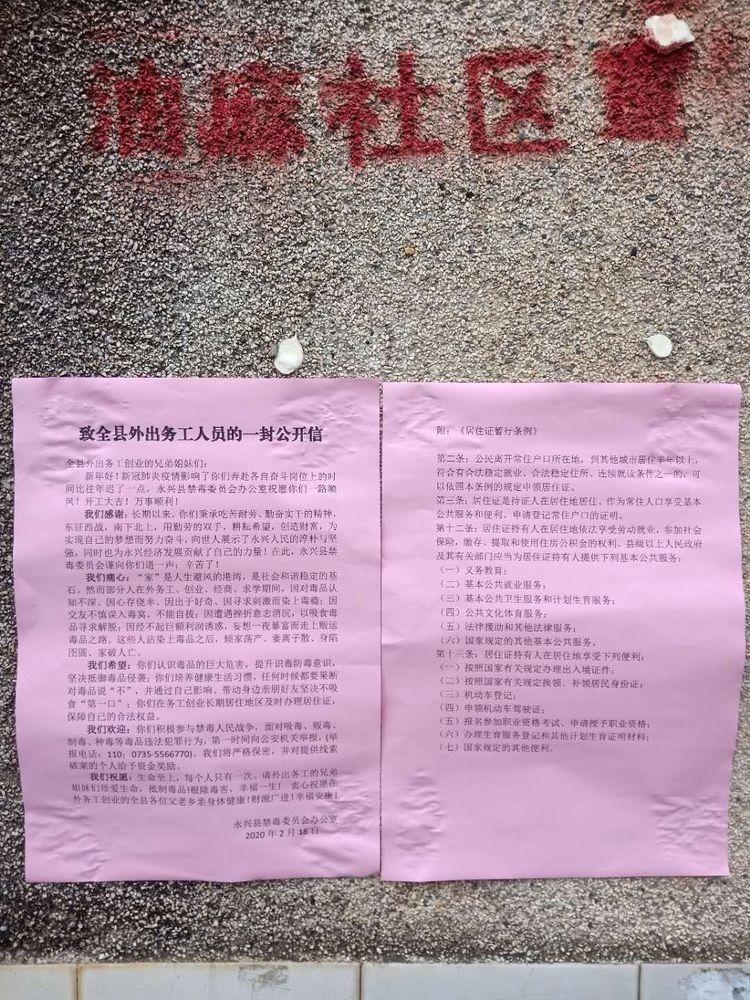 油麻社区宣
致全县外出务工人员的一封公开信
全县外出务工创业的兄弟姐妹们:
新年好!新冠肺炎疫情影响了你们奔赴各自奋斗岗位上的时
间比往年迟了一点,永兴县禁毒委员会办公室祝愿你们一路顺
风!开工大吉!万事顺利!
我们感谢:长期以来,你们秉承吃苦耐劳、勤奋实干的精神,
东征西战,南下北上,用勤劳的双手,耕耘希望,创造财富,为
实现自己的梦想而努力奋斗,向世人展示了永兴人民的淳朴与坚
强,同时也为永兴经济发展贡献了自己的力量!在此,永兴县禁
毒委员会谨向你们道一声:辛苦了!
我们痛心:“家”是人生避风的港湾,是社会和谐稳定的基
石。然而部分人在外务工、创业、经商、求学期间,因对毒品认
知不深、因心存侥幸、因出于好奇、因寻求刺激而染上毒瘾;因
交友不慎误入毒窝,不能自拔;因遭遇挫折意志消沉,以吸食毒
品寻求解脱;因经不起巨额利润诱惑,妄想一夜暴富而走上贩运
毒品之路。这些人沾染上毒品之后,倾家荡产、妻离子散、身陷
囹圄、家破人亡。
我们希望:你们认识毒品的巨大危害,提升识毒防毒意识,
坚决抵御毒品侵袭;你们培养健康生活习惯,任何时候都要果断
对毒品说“不”,并通过自己影响、带动身边亲朋好友坚决不吸
食“第一口”;你们在务工创业长期居住地区及时办理居住证,
保障自己的合法权益。
我们欢迎:你们积极参与禁毒人民战争,面对吸毒、贩毒、
制毒、种毒等毒品违法犯罪行为,第一时间向公安机关举报,(举
报电话:110;0735-5566770)。我们将严格保密,并对提供线索
破案的个人给予资金奖励。
我们祝愿:生命至上,每个人只有一次。请外出务工的兄弟
姐妹们珍爱生命,抵制毒品!根除毒害,幸福一生!衷心祝愿在
外务工创业的全县各位父老乡亲身体健康!财源广进!幸福安康!
永兴县禁毒委员会办公室
2020年2月18日
附:《居住证暂行条例》
第二条:公民离开常住户口所在地,到其他城市居住半年以上,
符合有合法稳定就业、合法稳定住所、连续就读条件之一的,可
以依照本条例的规定申领居住证。
第三条:居住证是持证人在居住地居住、作为常住人口享受基本
公共服务和便利、申请登记常住户口的证明。
第十二条:居住证持有人在居住地依法享受劳动就业,参加社会
保险,缴存、提取和使用住房公积金的权利。县级以上人民政府
及其有关部门应当为居住证持有人提供下列基本公共服务:
(一)义务教育;
(二)基本公共就业服务;
(三)基本公共卫生服务和计划生育服务;
(四)公共文化体育服务;
(五)法律援助和其他法律服务;
(六)国家规定的其他基本公共服务。
第十三条:居住证持有人在居住地享受下列便利:
(一)按照国家有关规定办理出入境证件;
(二)按照国家有关规定换领、补领居民身份证;
(三)机动车登记;
(四)申领机动车驾驶证;
(五)报名参加职业资格考试、申请授予职业资格;
(六)办理生育服务登记和其他计划生育证明材料;
(七)国家规定的其他便利。